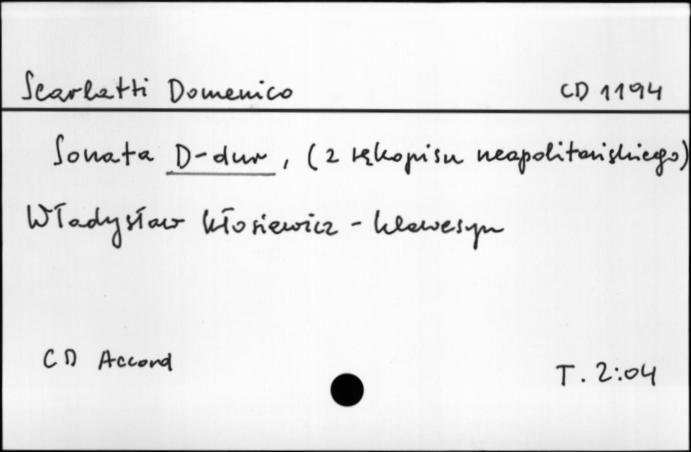 Scarlatti Domenico CD 1194
Sonata D-dur, (z rękopisu neapolitańskiego)
Władysław Kłosiewicz - klawesyn
CD Accord T. 2:04